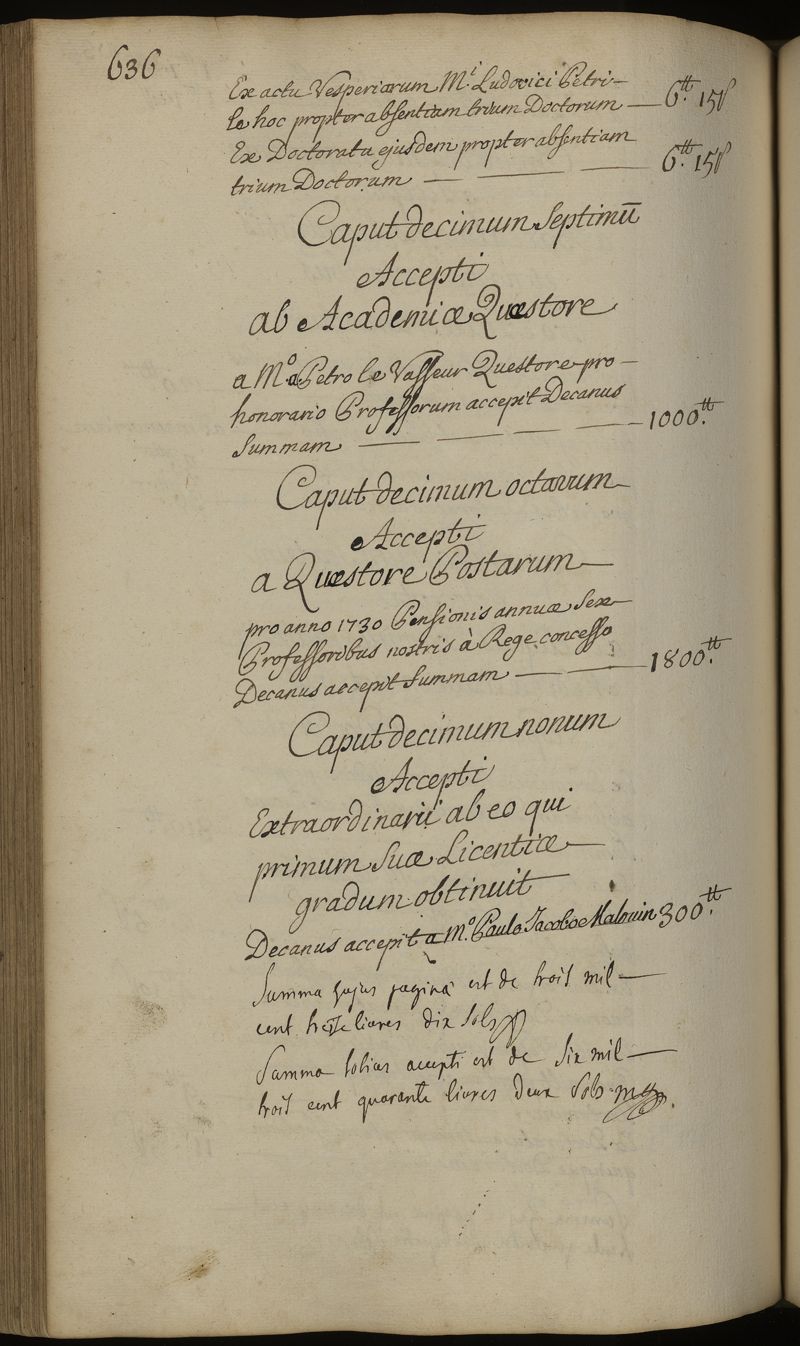 636
Ex actu Vesperiarum Mi Ludovici Petri-
le hoc propter absentiam trium Doctorum — 6.tt 15s
Ex Doctoratu ejusdem propter absentiam
trium Doctorum — — — 6.tt 15s
Caput decimum Septimū
Accepti
ab Academiæ Quæstore
a M.o a Petro le Vasseur Questore pro-
honorario Professorum accepit Decanus
Summam — — — — 1000.tt
Caput decimum octavum
Accepti
a Quæstore Postarum
pro anno 1730 Pensionis annuæ Sex
Professoribus nostris à Rege concesso
Decanus accepit Summam — — 1800.tt
Caput decimum nonum
Accepti
Extraordinarii ab eo qui
primum Suæ Licentiæ
gradum obtinuit
Decanus accepit a M.o Paulo Jacobo Malouin 300.tt
Summa hujus paginæ est de trois mil
cent treize livres dix sols
Summa totius accepti est de six mil
trois cent quarante livres deux sols